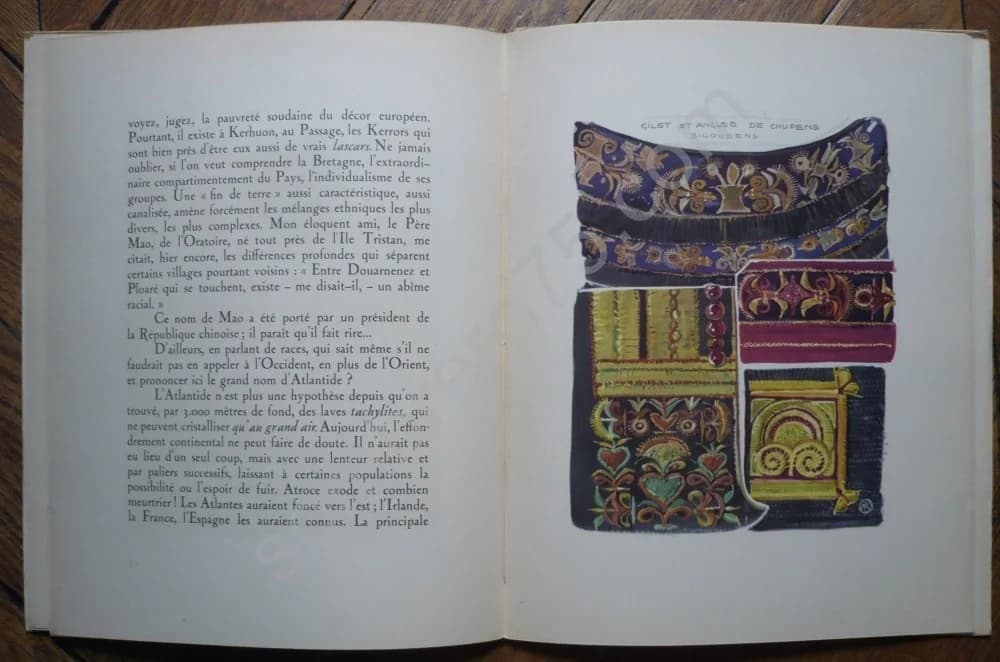 voyez, jugez, la pauvreté soudaine du décor européen.
Pourtant, il existe à Kerhuon, au Passage, les Kerrors qui
sont bien près d'être eux aussi de vrais lascars. Ne jamais
oublier, si l'on veut comprendre la Bretagne, l'extraordi-
naire compartimentement du Pays, l'individualisme de ses
groupes. Une « fin de terre » aussi caractéristique, aussi
canalisée, amène forcément les mélanges ethniques les plus
divers, les plus complexes. Mon éloquent ami, le Père
Mao, de l'Oratoire, né tout près de l'Ile Tristan, me
citait, hier encore, les différences profondes qui séparent
certains villages pourtant voisins : « Entre Douarnenez et
Ploaré qui se touchent, existe – me disait-il, – un abîme
racial. »
Ce nom de Mao a été porté par un président de
la République chinoise ; il paraît qu'il fait rire...
D'ailleurs, en parlant de races, qui sait même s'il ne
faudrait pas en appeler à l'Occident, en plus de l'Orient,
et prononcer ici le grand nom d'Atlantide ?
L'Atlantide n'est plus une hypothèse depuis qu'on a
trouvé, par 3.000 mètres de fond, des laves tachylites, qui
ne peuvent cristalliser qu'au grand air. Aujourd'hui, l'effon-
drement continental ne peut faire de doute. Il n'aurait pas
eu lieu d'un seul coup, mais avec une lenteur relative et
par paliers successifs, laissant à certaines populations la
possibilité ou l'espoir de fuir. Atroce exode et combien
meurtrier ! Les Atlantes auraient foncé vers l'est ; l'Irlande,
la France, l'Espagne les auraient connus. La principale
GILET ET ANGLES DE CHUPENS
BIGOUDENS